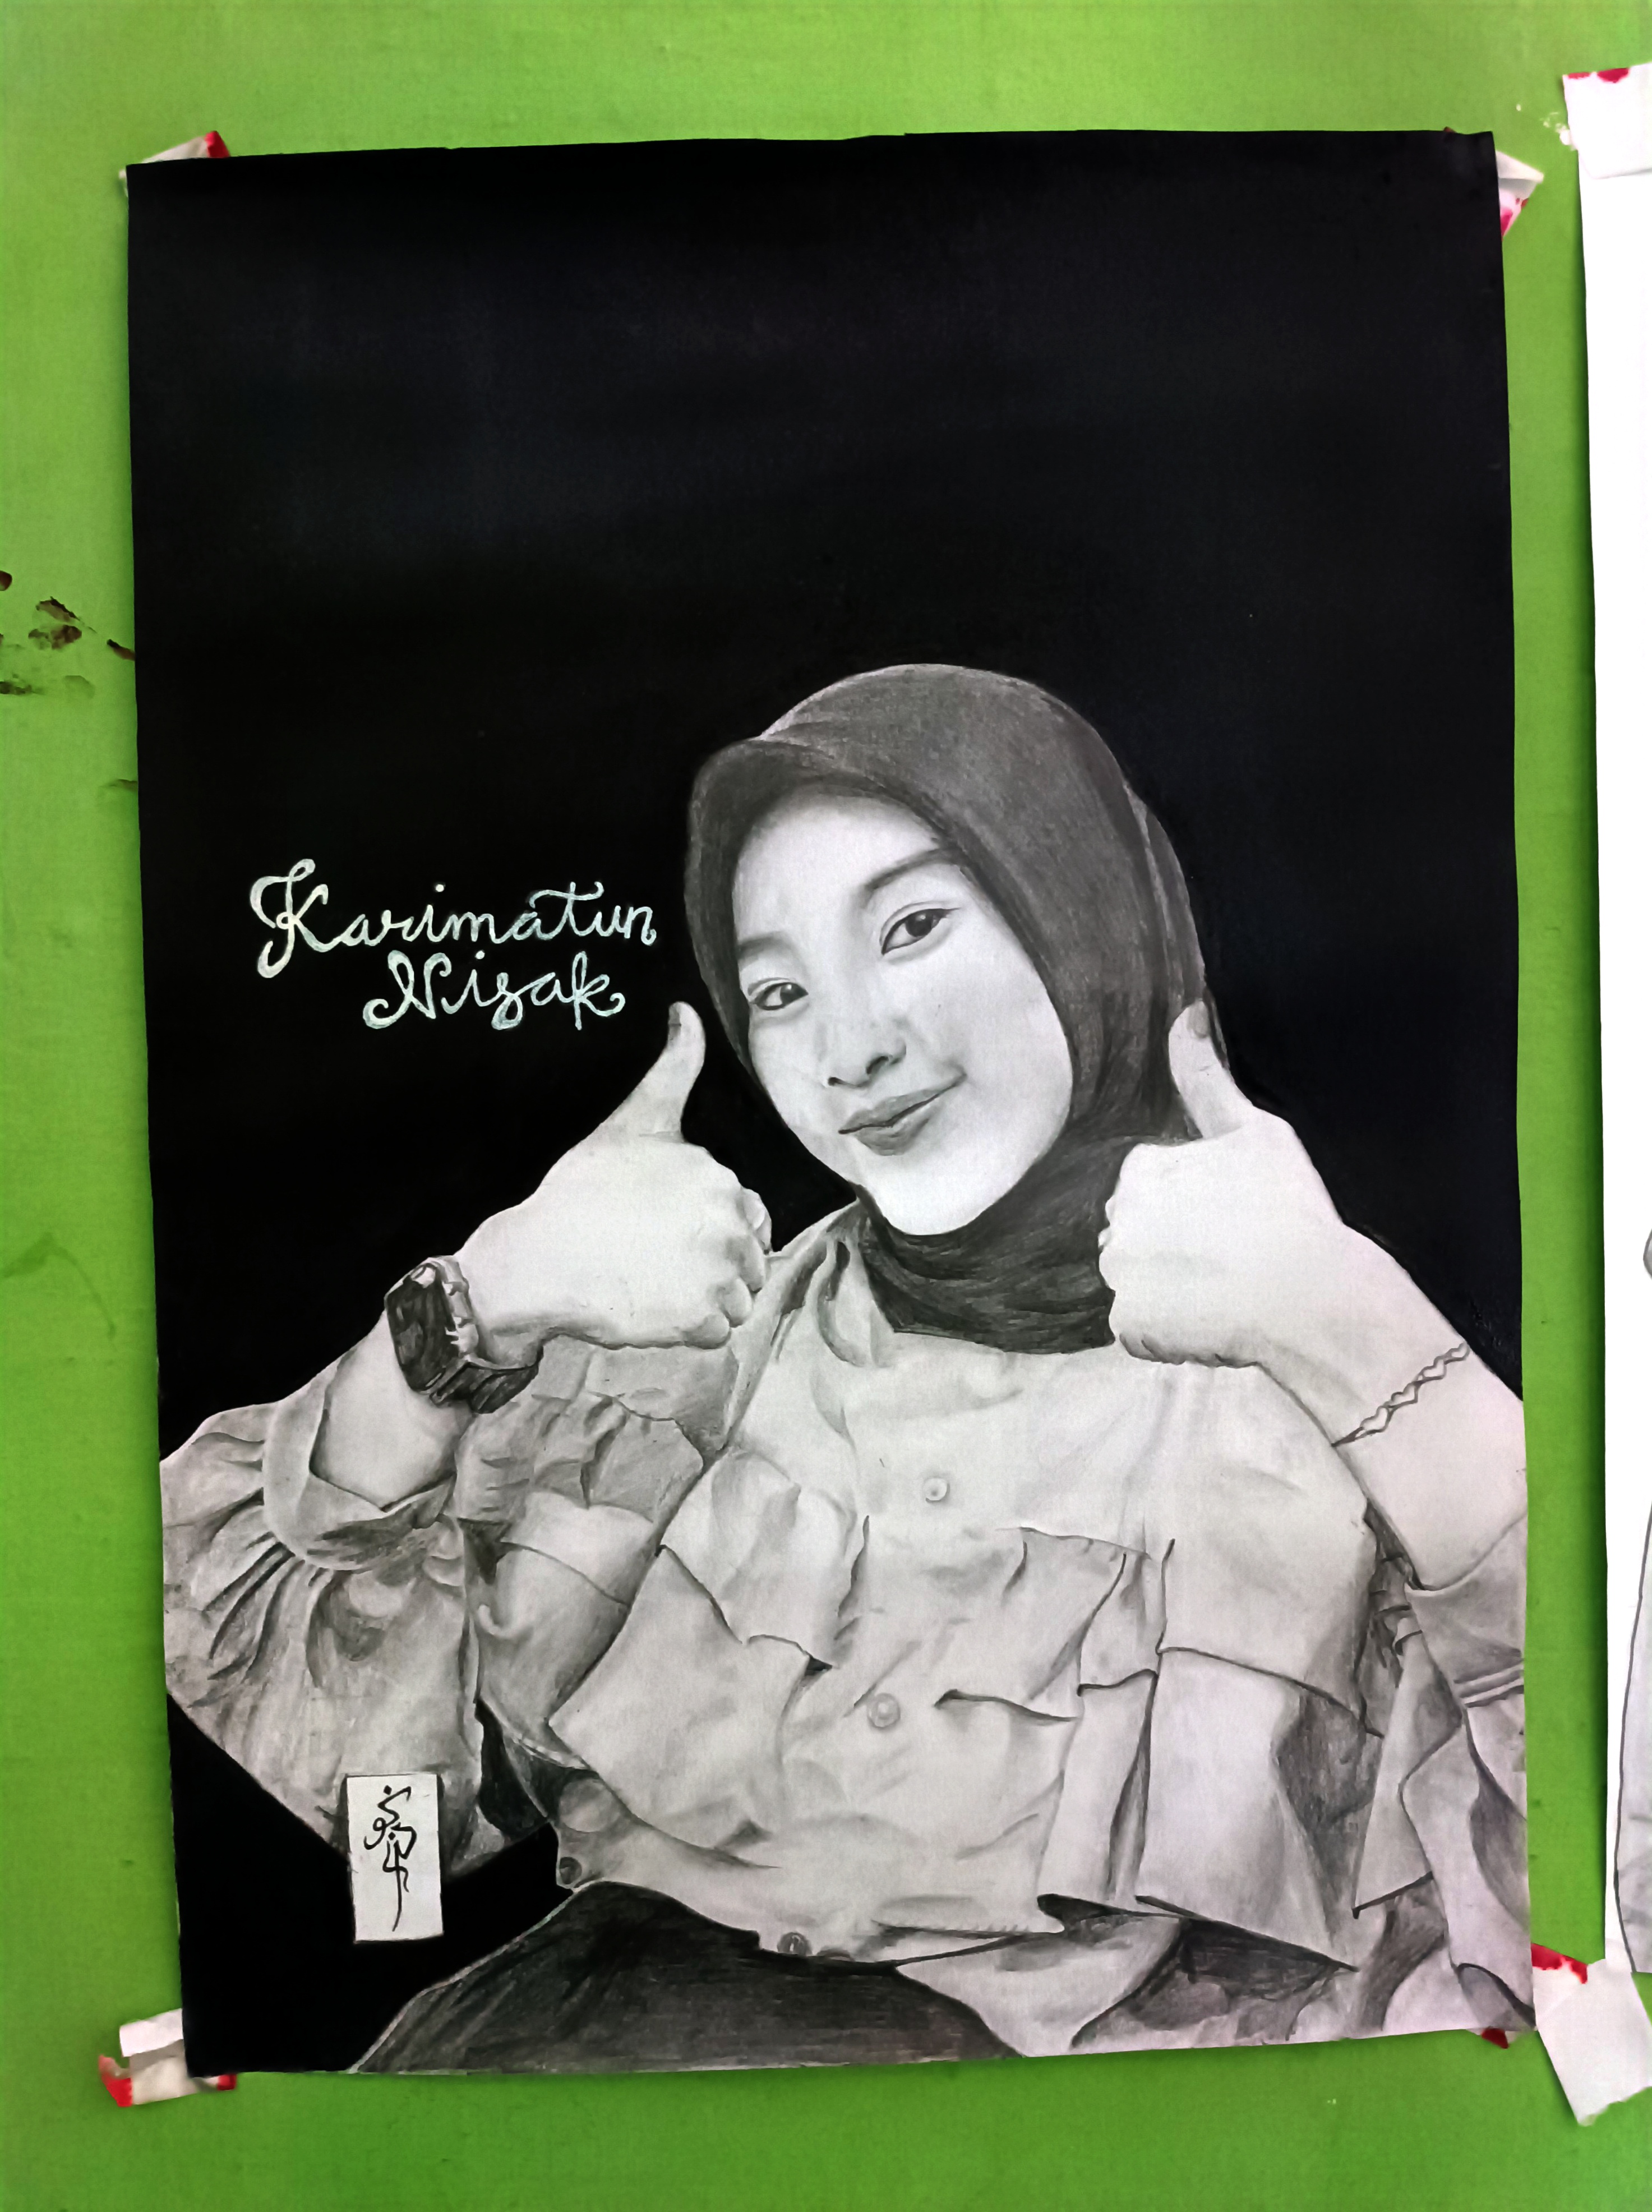 Karimatun
Nisak